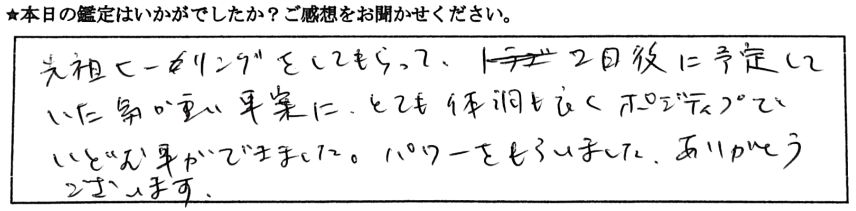 ★本日の鑑定はいかがでしたか？ご感想をお聞かせください。
先祖ヒーリングをしてもらって、2日後に予定して
いた気が重い事案に、とても体調も良くポジティブで
いどむ事ができました。パワーをもらいました、ありがとう
ございます.